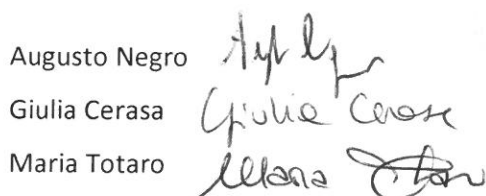 Augusto Negro
Giulia Cerasa Giulia Cerasa
Maria Totaro Maria Totaro